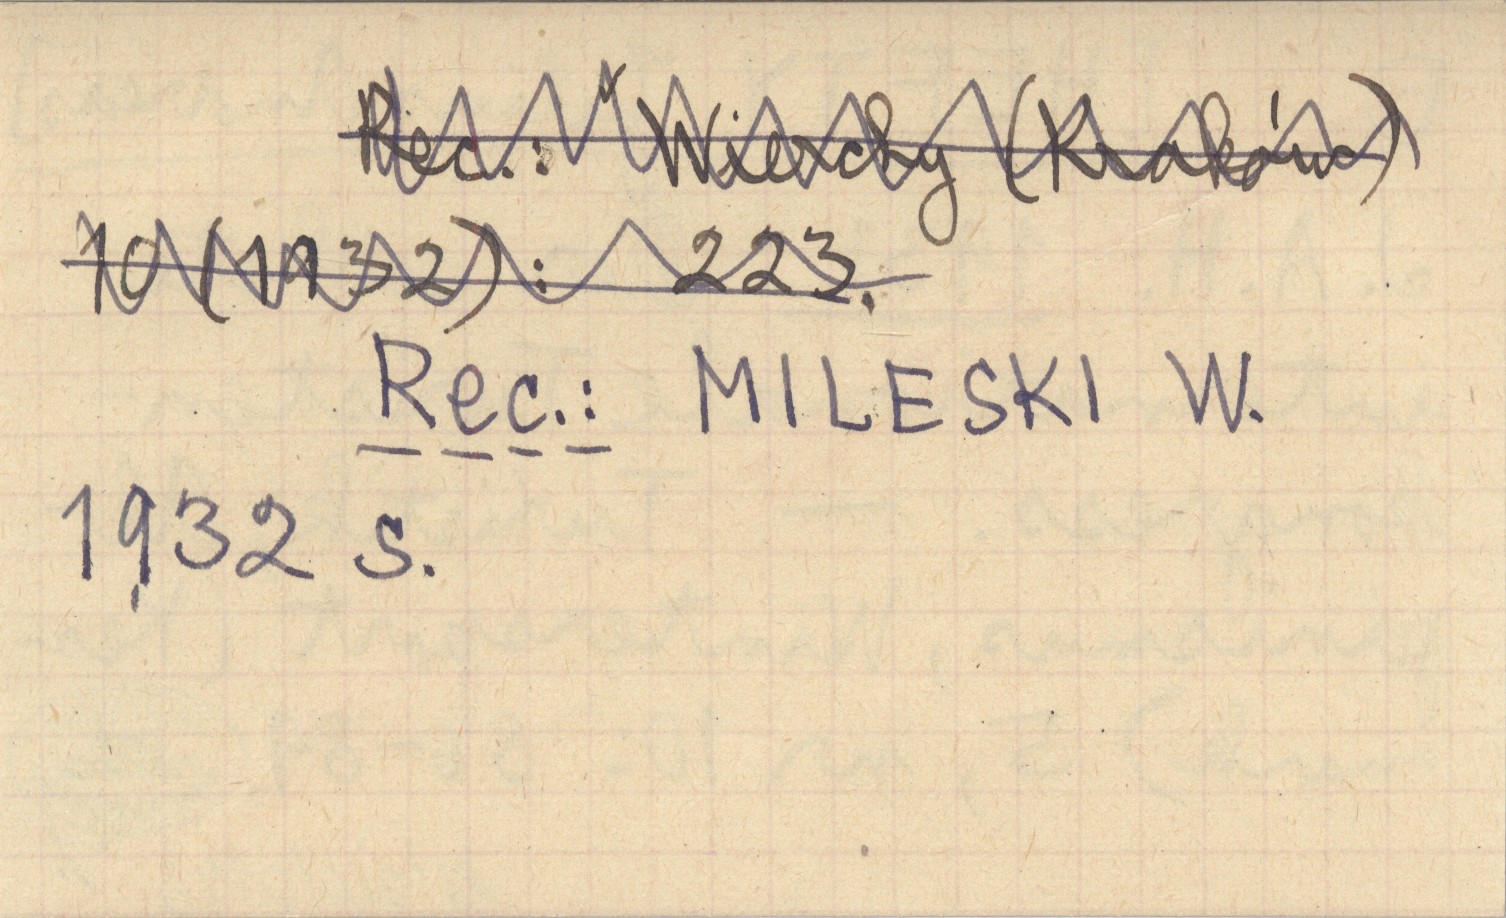 Rec.: Wierchy (Kraków)
10 (1932): 223.
Rec.: MILESKI W.
1932 s.